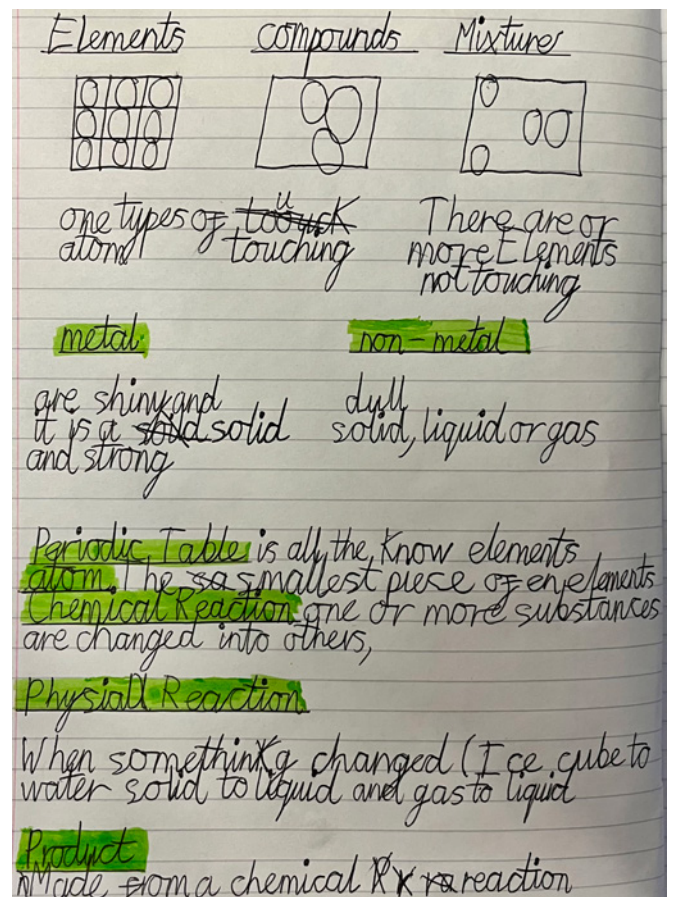 Elements compounds Mixtures
one types of touching There are or
atom more Elements
not touching
metal non-metal
are shiny and dull
it is a solid solid, liquid or gas
and strong
Periodic Table is all the Know elements
atom The smallest piece of en elements
Chemical Reaction one or more substances
are changed into others,
Physiall Reaction
When something changed (Ice cube to
water solid to liquid and gas to liquid
Product
Made from a chemical reaction